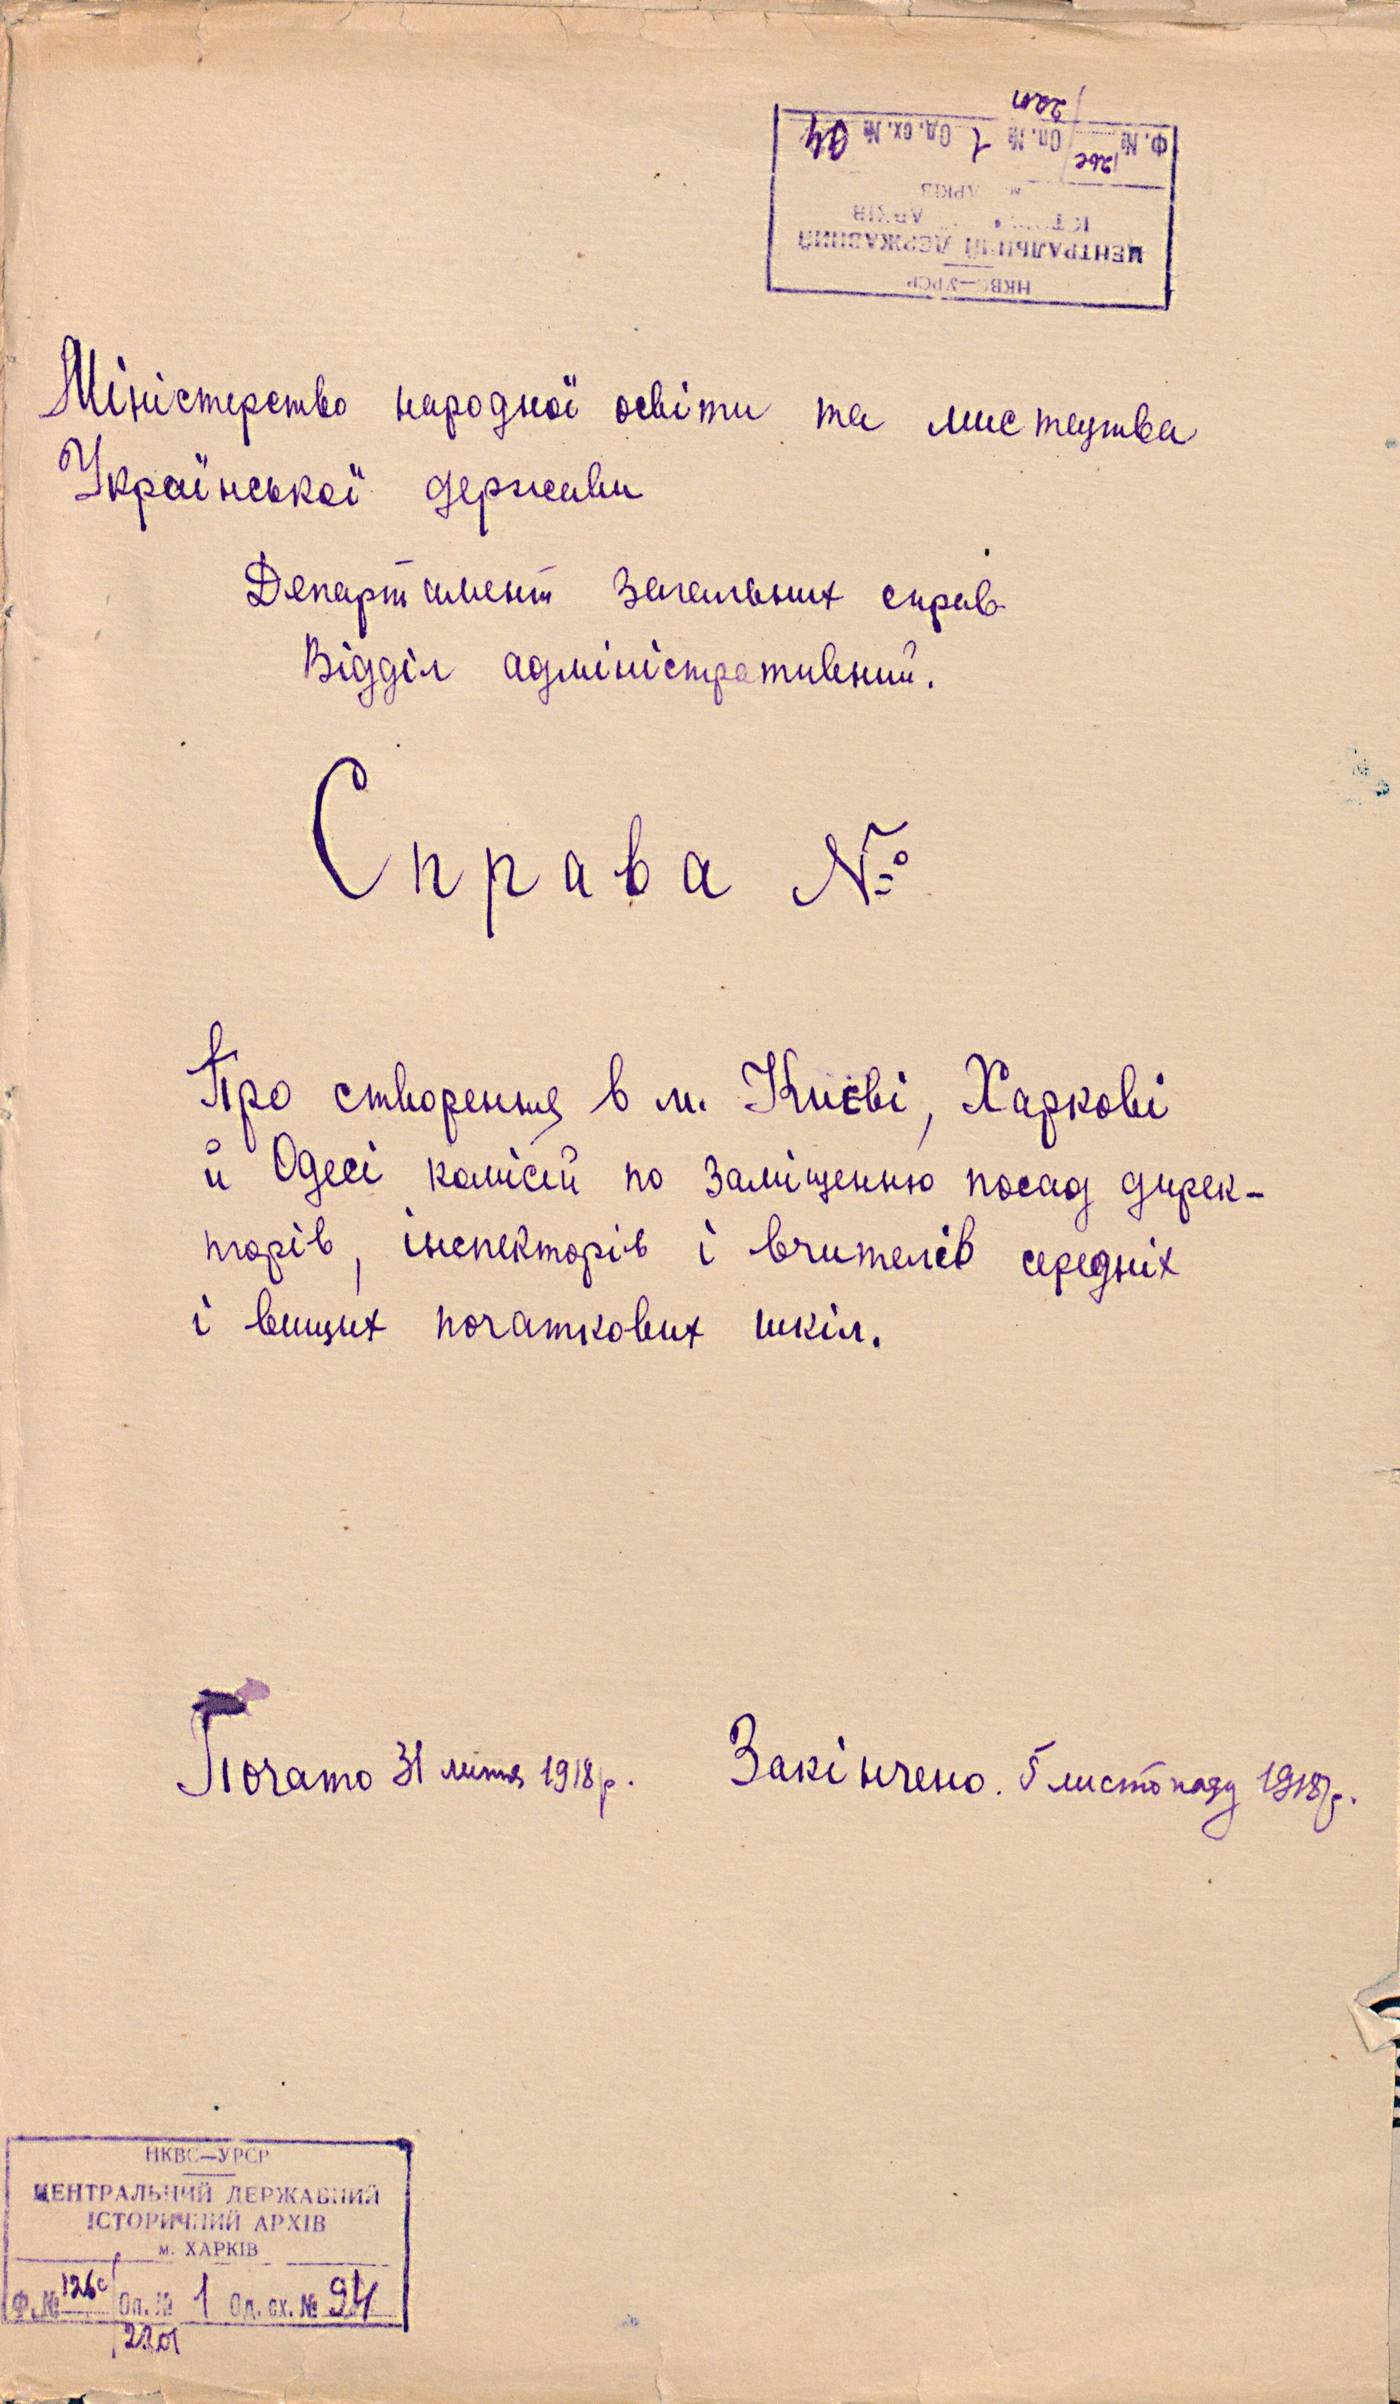 НКВС—УРСР
ЦЕНТРАЛЬНИЙ ДЕРЖАВНИЙ
АРХІВ
Ф. № Оп. № 1 Од. сх. № 94
Міністерство народної освіти та мистецтва
Української держави
Департамент загальних справ
Відділ адміністративний.
Справа №
Про створення в м. Києві, Харкові
й Одесі комісій по заміщенню посад дирек-
торів, інспекторів і вчителів середніх
і вищих початкових шкіл.
Почато 31 липня 1918 р. Закінчено. 5 листопаду 1918 р.
НКВС—УРСР
ЦЕНТРАЛЬНИЙ ДЕРЖАВНИЙ
ІСТОРИЧНИЙ АРХІВ
м. ХАРКІВ
Ф. № 126с Оп. № 1 Од. сх. № 94
2201